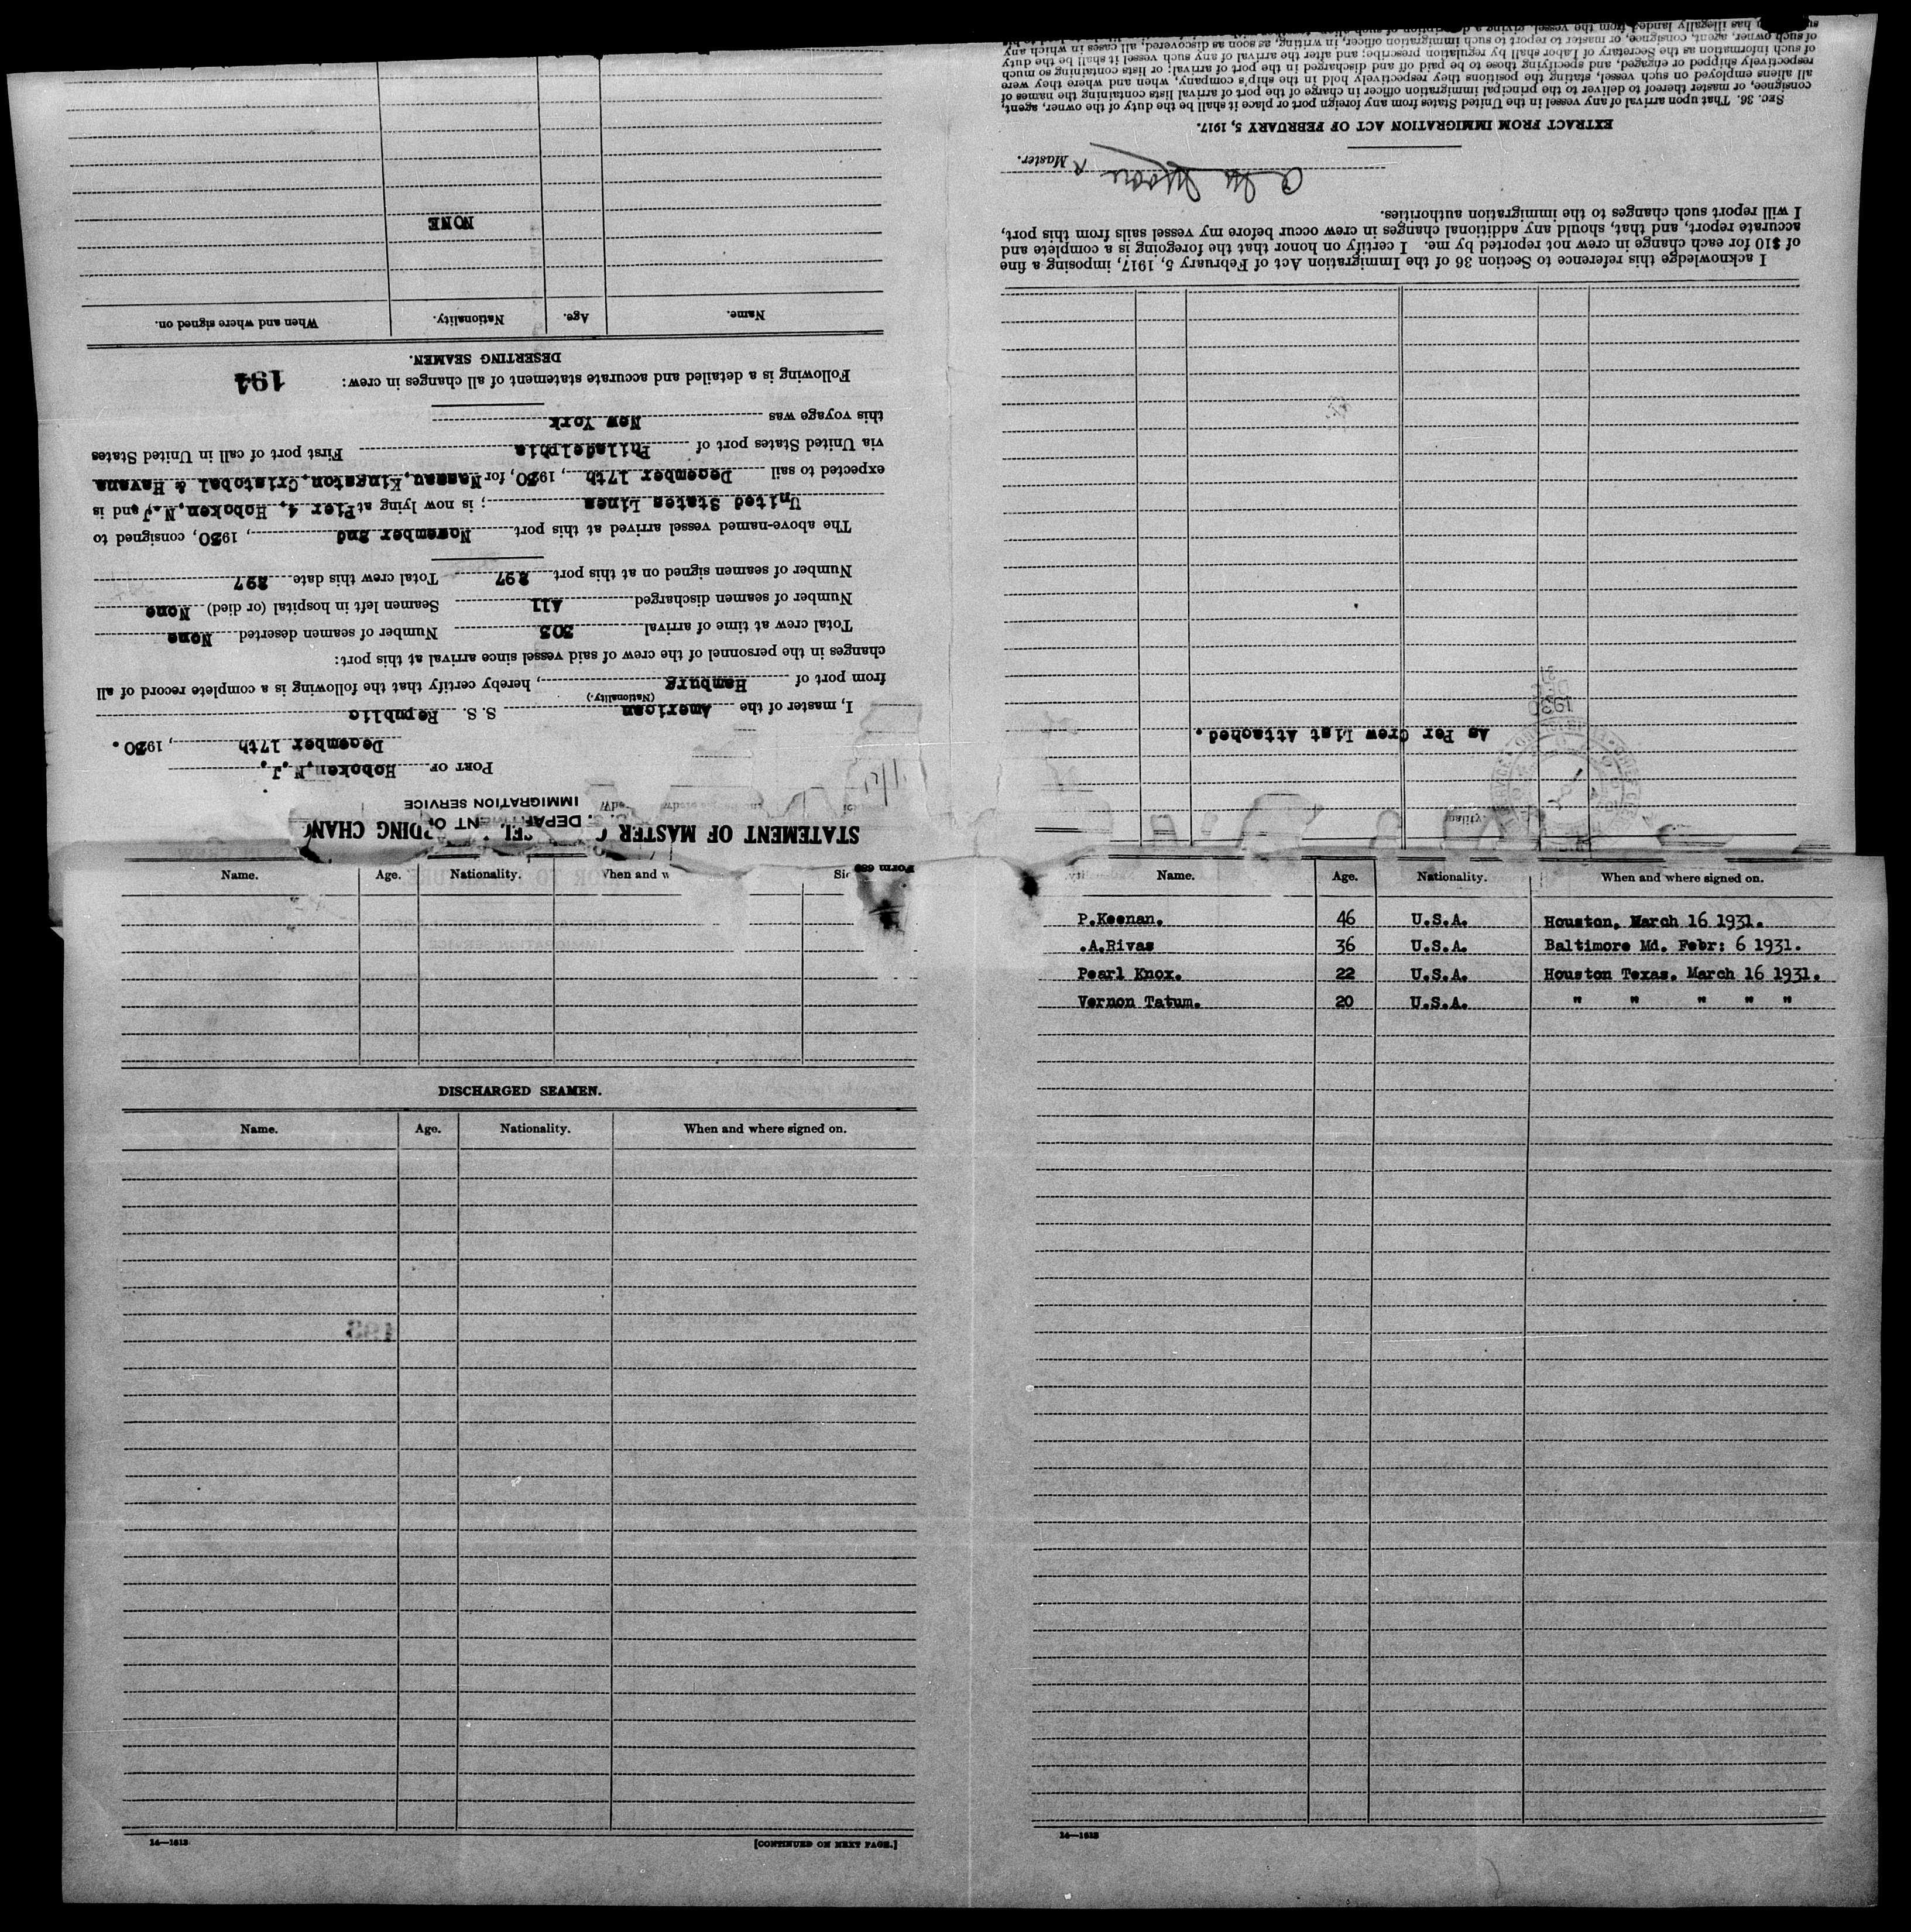 Form 689
U.S. DEPARTMENT OF
IMMIGRATION SERVICE
STATEMENT OF MASTER
PORT OF Hoboken, N.J.,
December 17th, 1930.
I, master of the American S. S. Republic
(Nationality.)
from port of Hamburg, hereby certify that the following is a complete record of all
changes in the personnel of the crew of said vessel since arrival at this port:
Total crew at time of arrival 303 Number of seamen deserted None
Number of seamen discharged All Seamen left in hospital (or died) None
Number of seamen signed on at this port 297 Total crew this date 297
The above-named vessel arrived at this port November 2nd, 1930, consigned to
United States Lines; is now lying at Pier 4, Hoboken, N.J. and is
expected to sail December 17th, 1930, for Nassau, Kingston, Cristobal & Havana
via United States port of Philadelphia First port of call in United States
this voyage was New York
Following is a detailed and accurate statement of all changes in crew:
194
DESERTING SEAMEN.
Name. Age. Nationality. When and where signed on.
NONE
As Per Crew List Attached.
1930
DEC
I acknowledge this reference to Section 36 of the Immigration Act of February 5, 1917, imposing a fine
of $10 for each change in crew not reported by me. I certify on honor that the foregoing is a complete and
accurate report, and that, should any additional changes in crew occur before my vessel sails from this port,
I will report such changes to the immigration authorities.
Moore
Master.
EXTRACT FROM IMMIGRATION ACT OF FEBRUARY 5, 1917.
SEC. 36. That upon arrival of any vessel in the United States from any foreign port or place it shall be the duty of the owner, agent,
consignee, or master thereof to deliver to the principal immigration officer in charge of the port of arrival lists containing the names of
all aliens employed on such vessel, stating the positions they respectively hold in the ship's company, when and where they were
respectively shipped or engaged, and specifying those to be paid off and discharged in the port of arrival; or lists containing so much
of such information as the Secretary of Labor shall by regulation prescribe; and after the arrival of any such vessel it shall be the duty
of such owner, agent, consignee, or master to report to such immigration officer, in writing, as soon as discovered, all cases in which any
has illegally landed from the vessel, giving a description of such alien
Name. Age. Nationality. When and
DISCHARGED SEAMEN.
Name. Age. Nationality. When and where signed on.
193
14—1613
[CONTINUED ON NEXT PAGE.]
Name. Age. Nationality. When and where signed on.
P.Keenan. 46 U.S.A. Houston, March 16 1931.
.A.Rivas 36 U.S.A. Baltimore Md. Febr: 6 1931.
Pearl Knox. 22 U.S.A. Houston Texas. March 16 1931.
Vernon Tatum. 20 U.S.A. " " " " "
14—1613